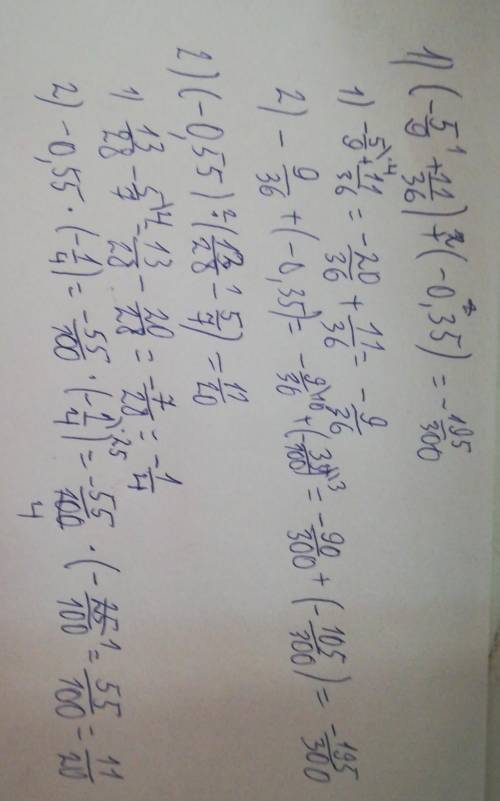 1) (-5/9 + 11/36) + (-0,35) = -195/300
1) -5/9 + 11/36 = -20/36 + 11/36 = -9/36
2) -9/36 + (-0,35) = -9/36 + (-35/100) = -90/300 + (-105/300) = -195/300
2) (-0,55) · (13/28 - 5/7) = 11/20
1) 13/28 - 5/7 = 13/28 - 20/28 = -7/28 = -1/4
2) -0,55 · (-1/4) = -55/100 · (-1/4) = -55/100 · (-25/100 = 55/100 = 11/20